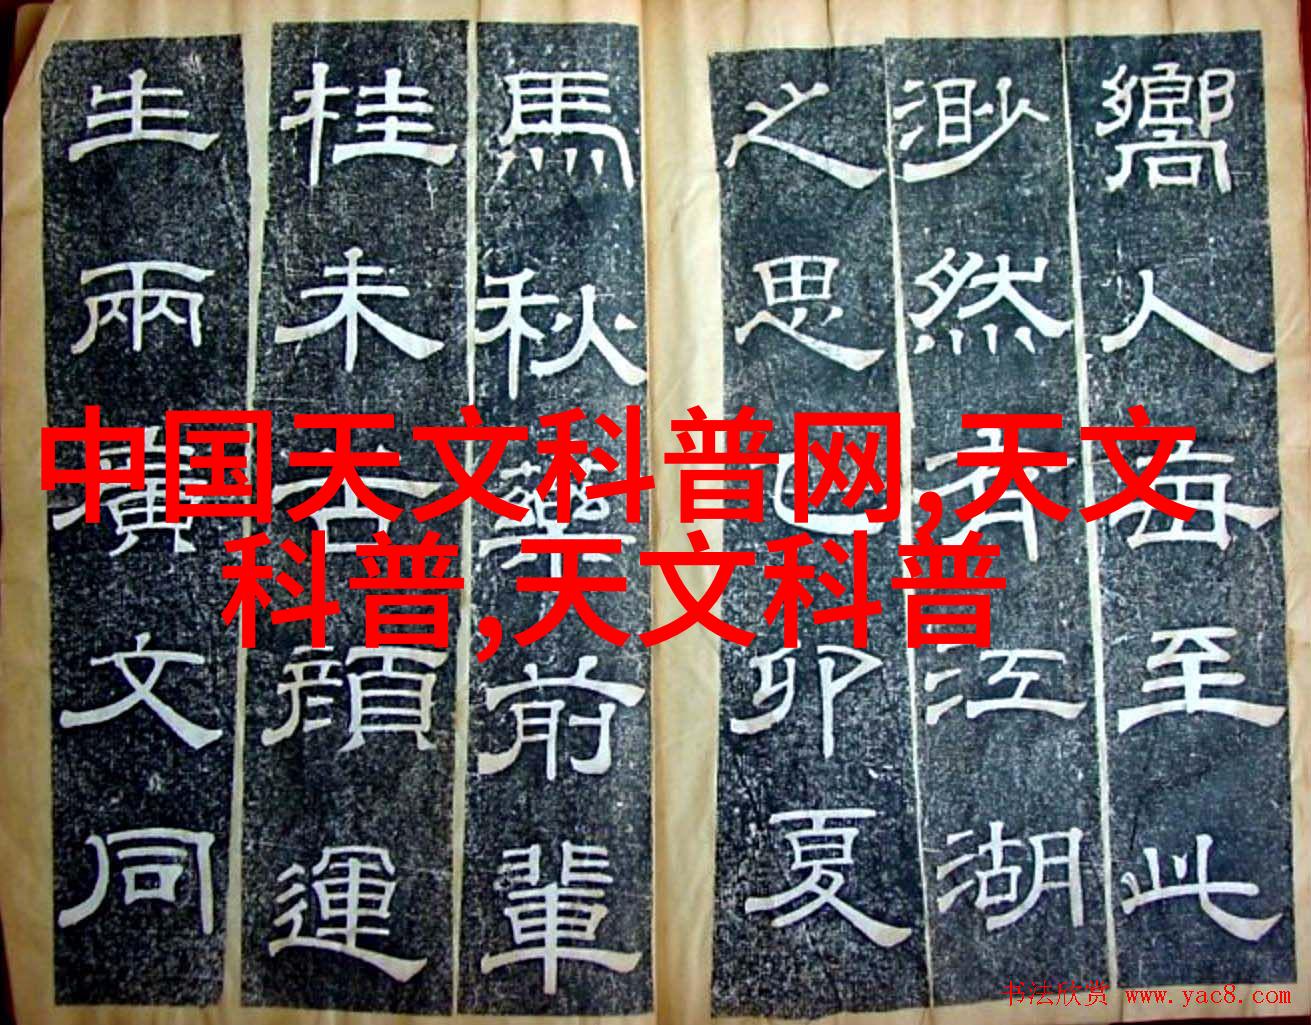 嚮人每至此
渺然有江湖
之思己卯夏
馬秋藥前輩
桂未谷顏運
生兩廣文同
中国天文科普网,天文
科普,天文科普
书法欣赏 www.yac8.com